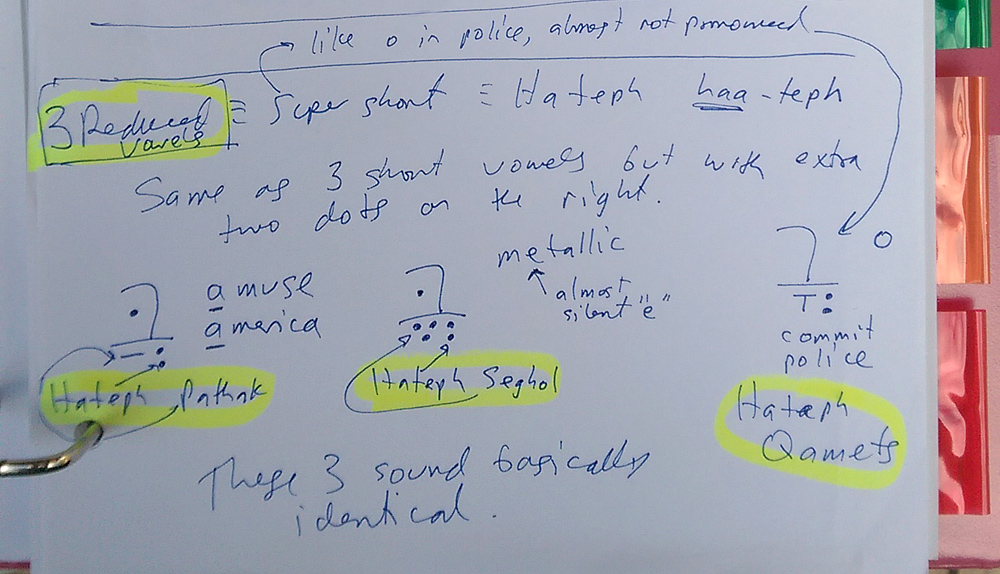 like o in police, almost not pronounced
3 Reduced vowels ≡ Super short ≡ Hateph haa-teph
Same as 3 short vowels but with extra
two dots on the right.
amuse
america
Hateph Pathak
metallic
almost
silent "e"
Hateph Seghol
o
commit
police
Hateph
Qamets
These 3 sound basically
identical.